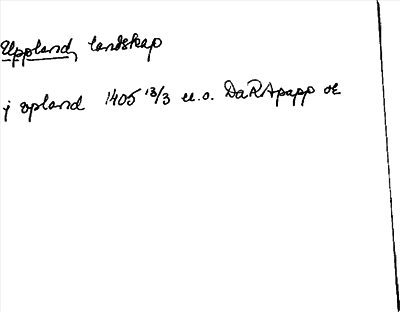 Uppland, landskap
j opland 1405 13/3 u.o. DaRApapp or